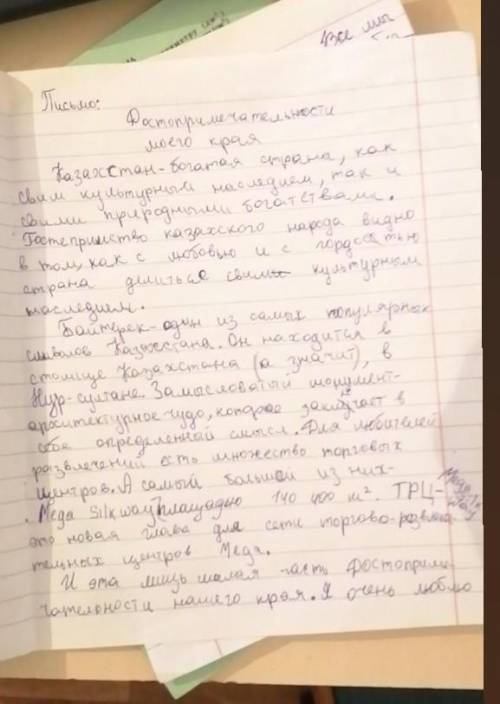 Все мы
Письмо:
Достопримечательности
моего края
Казахстан-богатая страна, как
своим культурным наследием, так и
своими природными богатствами.
Гостеприимство казахского народа видно
в том, как с любовью и с гордостью
страна делиться своим культурным
наследием.
Байтерек-один из самых популярных
символов Казахстана. Он находится в
столице Казахстана (а значит), в
Нур-султане. Замысловатый монумент-
архитектурное чудо, которое заключает в
себе определенный смысл. Для любителей
развлечений есть множество торговых
центров. А самый большой из них-
Mega Silkway площадью 140 400 м². ТРЦ-
это новая глава для сети торгово-развлека
тельных центров Mega.
И эта лишь малая часть достоприме
чательности нашего края. Я очень люблю